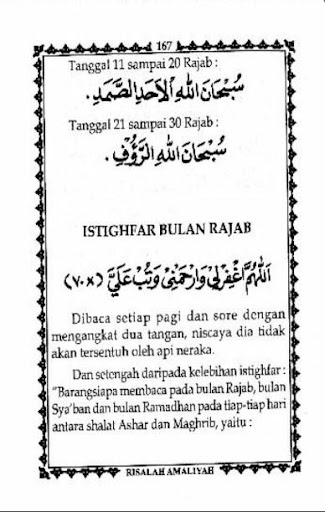 167
Tanggal 11 sampai 20 Rajab :
سُبْحَانَ اللهِ الْاَحَدِ الصَّمَدِ.
Tanggal 21 sampai 30 Rajab :
سُبْحَانَ اللهِ الرَّؤُوْفِ.
ISTIGHFAR BULAN RAJAB
اَللّٰهُمَّ اغْفِرْلِيْ وَارْحَمْنِيْ وَتُبْ عَلَيَّ (٧٠×)
Dibaca setiap pagi dan sore dengan
mengangkat dua tangan, niscaya dia tidak
akan tersentuh oleh api neraka.
Dan setengah daripada kelebihan istighfar :
"Barangsiapa membaca pada bulan Rajab, bulan
Sya'ban dan bulan Ramadhan pada tiap-tiap hari
antara shalat Ashar dan Maghrib, yaitu :
RISALAH AMALIYAH